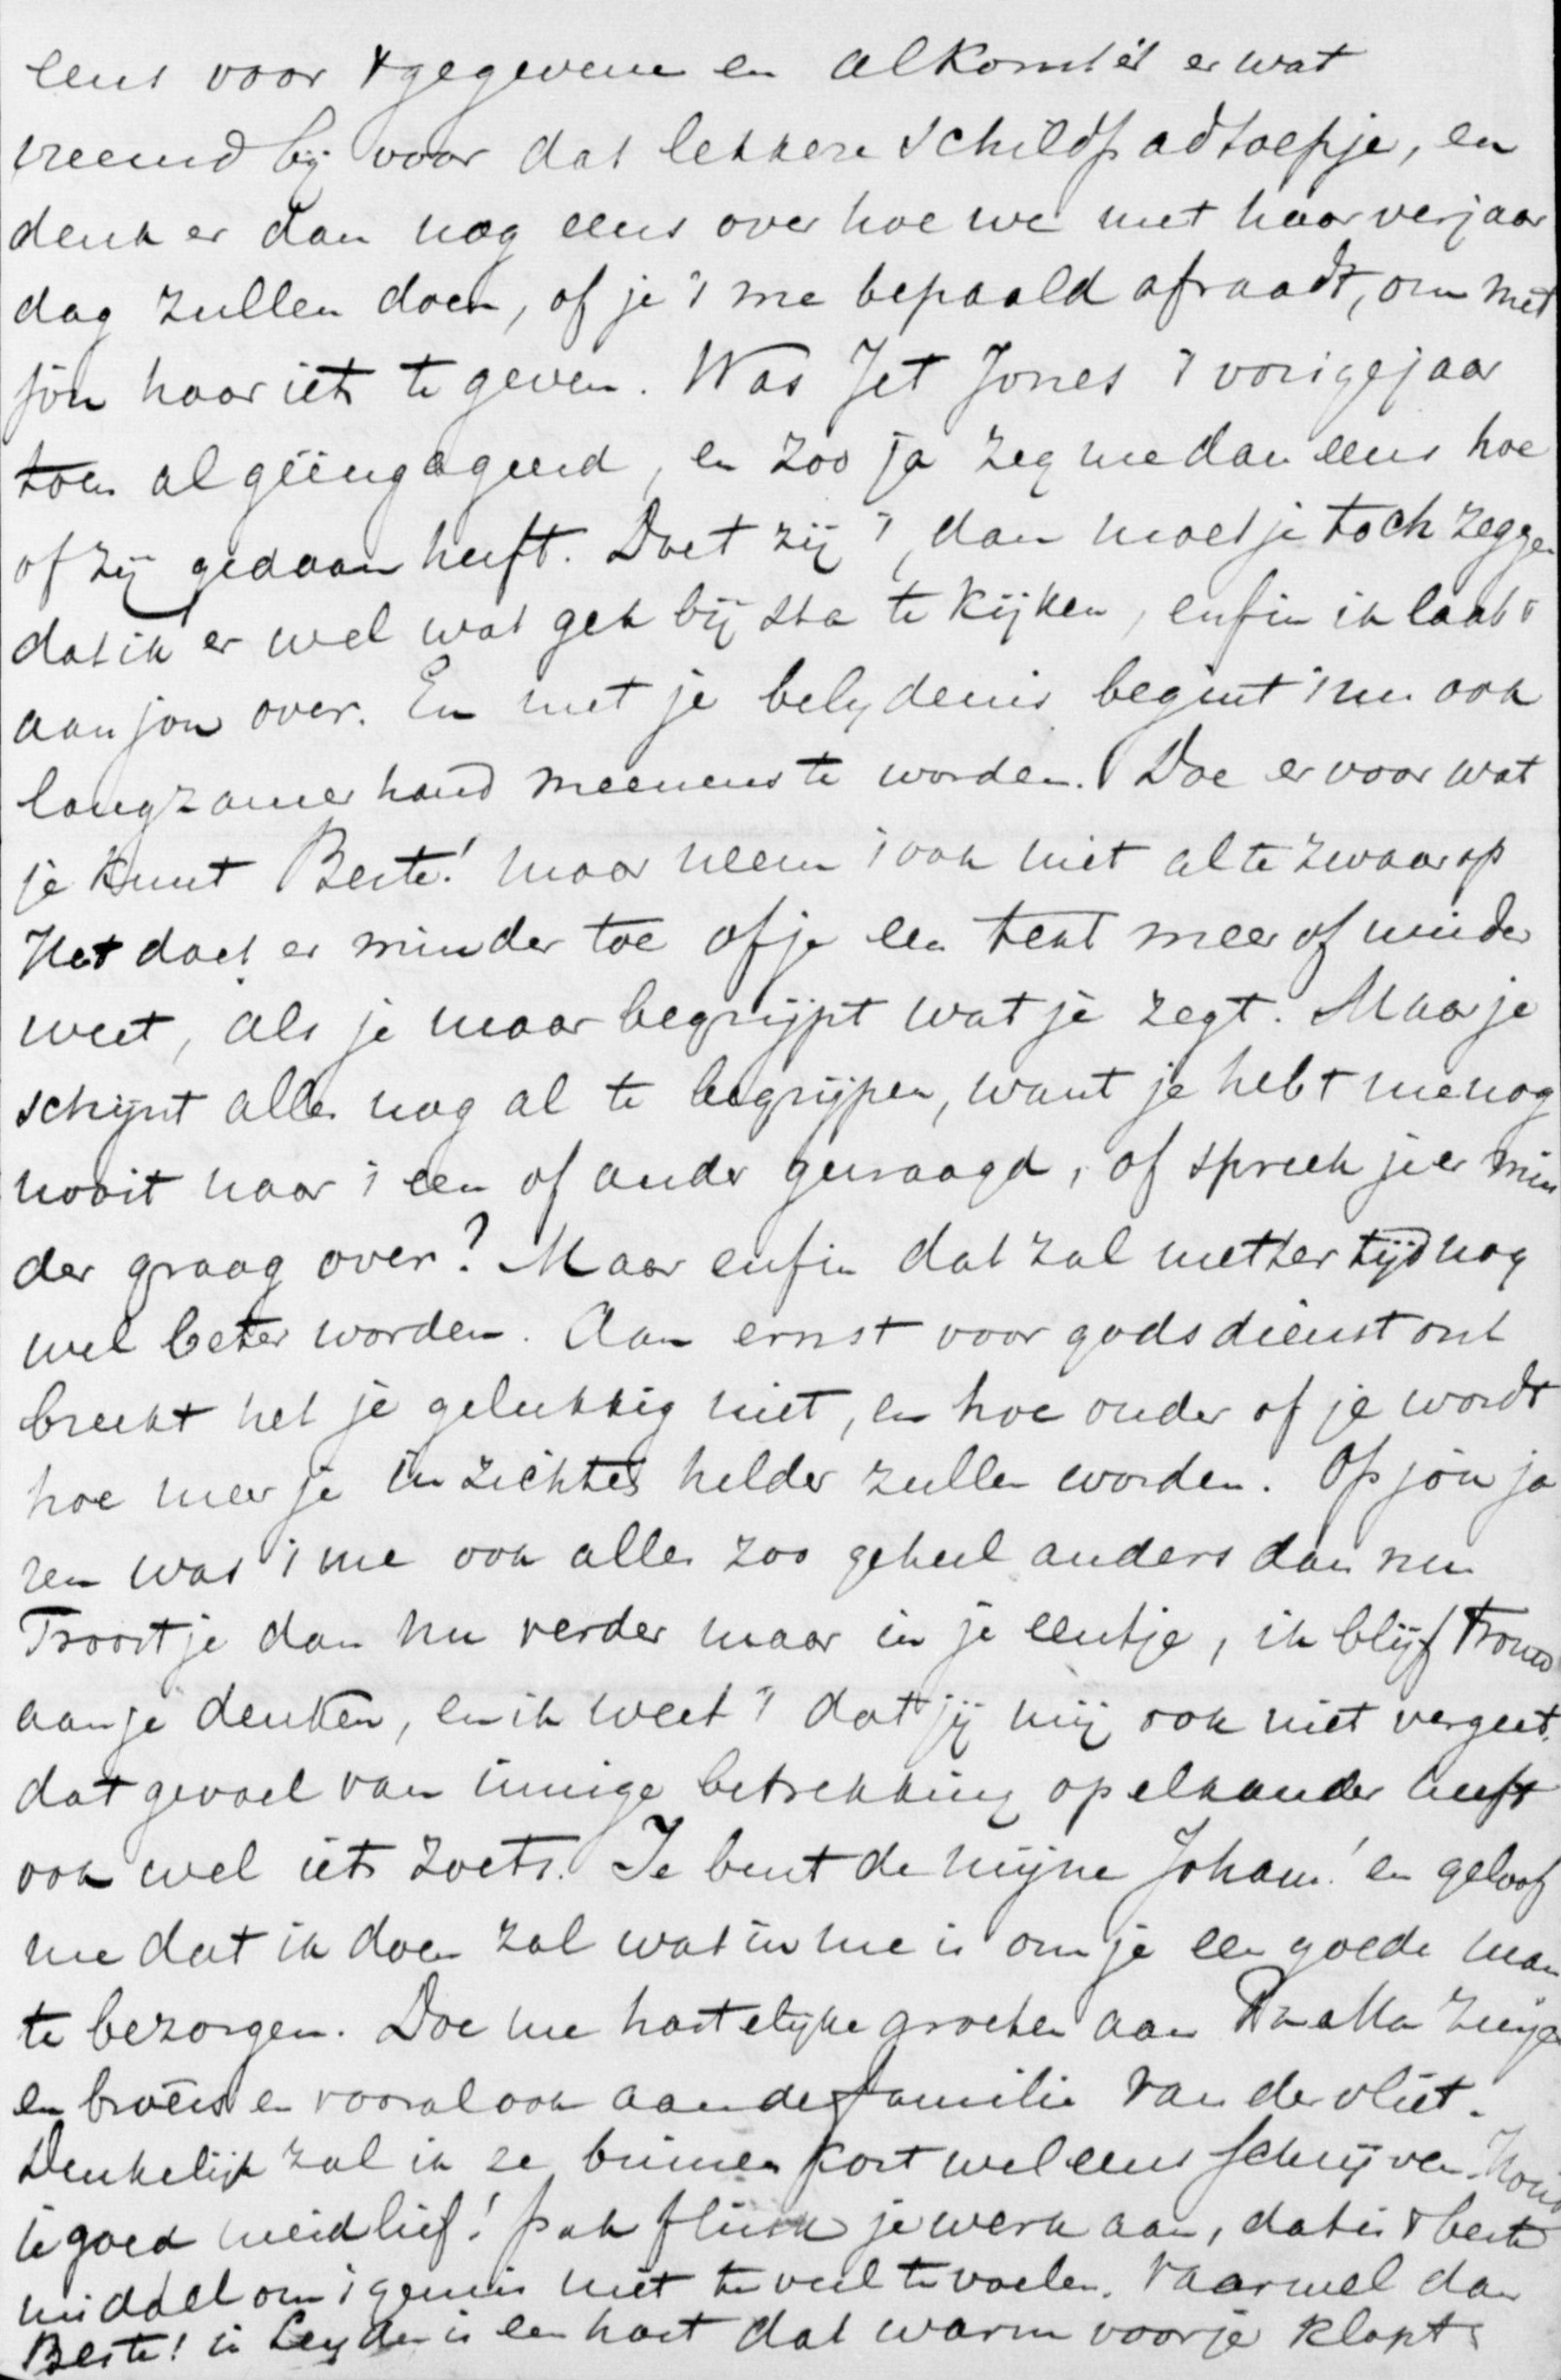 eens voor 't gegevene en al komt 't er wat
vreemd bij voor dat lekkere schildpadsoepje, en
denk er dan nog eens over hoe we met haar verjaar
dag zullen doen, of je 't me bepaald afraadt, om met
jou haar iets te geven. Was Jet Jones 't vorige jaar
toen al geëngageerd, en zoo ja zeg me dan eens hoe
of zij gedaan heeft. Doet zij 't, dan moet je toch zeggen
dat ik er wel wat gek bij sta te kijken, enfin ik laat 't
aan jou over. En met je belydenis begint 't nu ook
langzamerhand meenens te worden. Doe er voor wat
je kunt Beste! maar neem 't ook niet al te zwaar op
Het doet er minder toe of je een tekst meer of minder
weet, als je maar begrijpt wat je zegt. Maar je
schijnt alles nog al te begrijpen, want je hebt me nog
nooit naar 't een of ander gevraagd, of spreek je er min
der graag over? Maar enfin dat zal metter tijd nog
wel beter worden. Aan ernst voor godsdienst ont
breekt het je gelukkig niet, en hoe ouder of je wordt
hoe meer je inzichten helder zullen worden. Op jou ja
ren was 't me ook alles zoo geheel anders dan nu
Troost je dan nu verder maar in je eentje, ik blijf trouw
aan je denken, en ik weet 't dat jij mij ook niet vergeet.
dat gevoel van innige betrekking op elkander heeft
ook wel iets zoets. Je bent de mijne Johann! en geloof
me dat ik doen zal wat in me is om je een goede man
te bezorgen. Doe me hartelijke groeten aan Pa Ma zusjes
en broers en vooral ook aan de familie van der Vliet.
Denkelijk zal ik ze binnen kort wel eens schrijven. Houd
je goed meidlief! pak flink je werk aan, dat is 't beste
middel om 't gemis niet te veel te voelen. Vaarwel dan
Beste! in Leyden is een hart dat warm voor je klopt